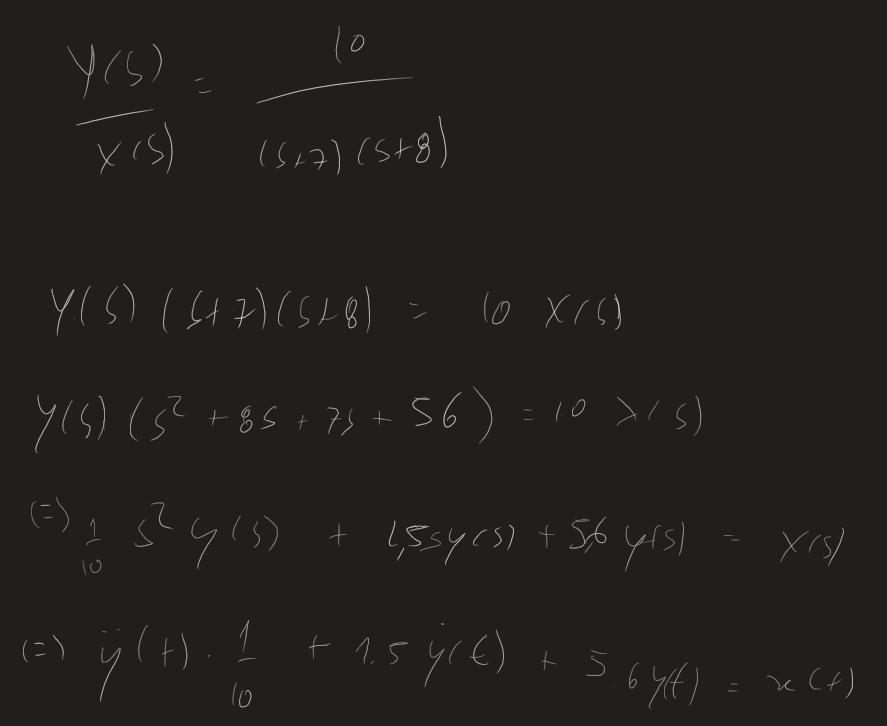 Y(s)/X(s) = 10/((s+7)(s+8))
Y(s) (s+7)(s+8) = 10 X(s)
Y(s) (s² + 8s + 7s + 56) = 10 X(s)
(=) 1/10 s² y(s) + 1,5 s y(s) + 5,6 y(s) = X(s)
(=) ÿ(t) · 1/10 + 1.5 ẏ(t) + 5.6 y(t) = x(t)